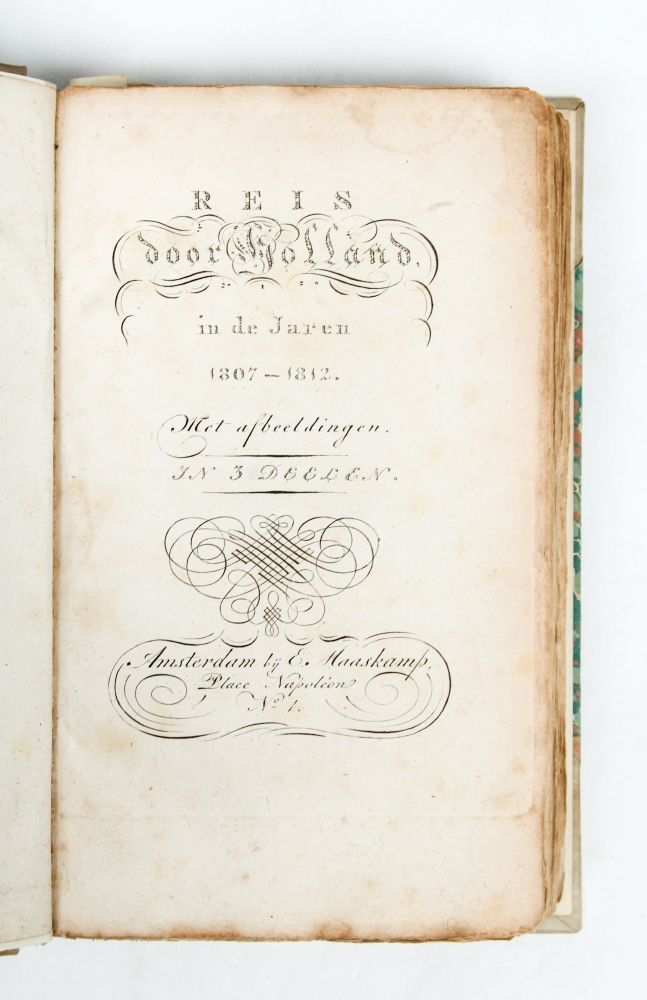 REIS
door Holland.
in de Jaren
1807 – 1812.
Met afbeeldingen.
IN 3 DEELEN.
Amsterdam bÿ E. Maaskamp,
Place Napoléon
No 1.